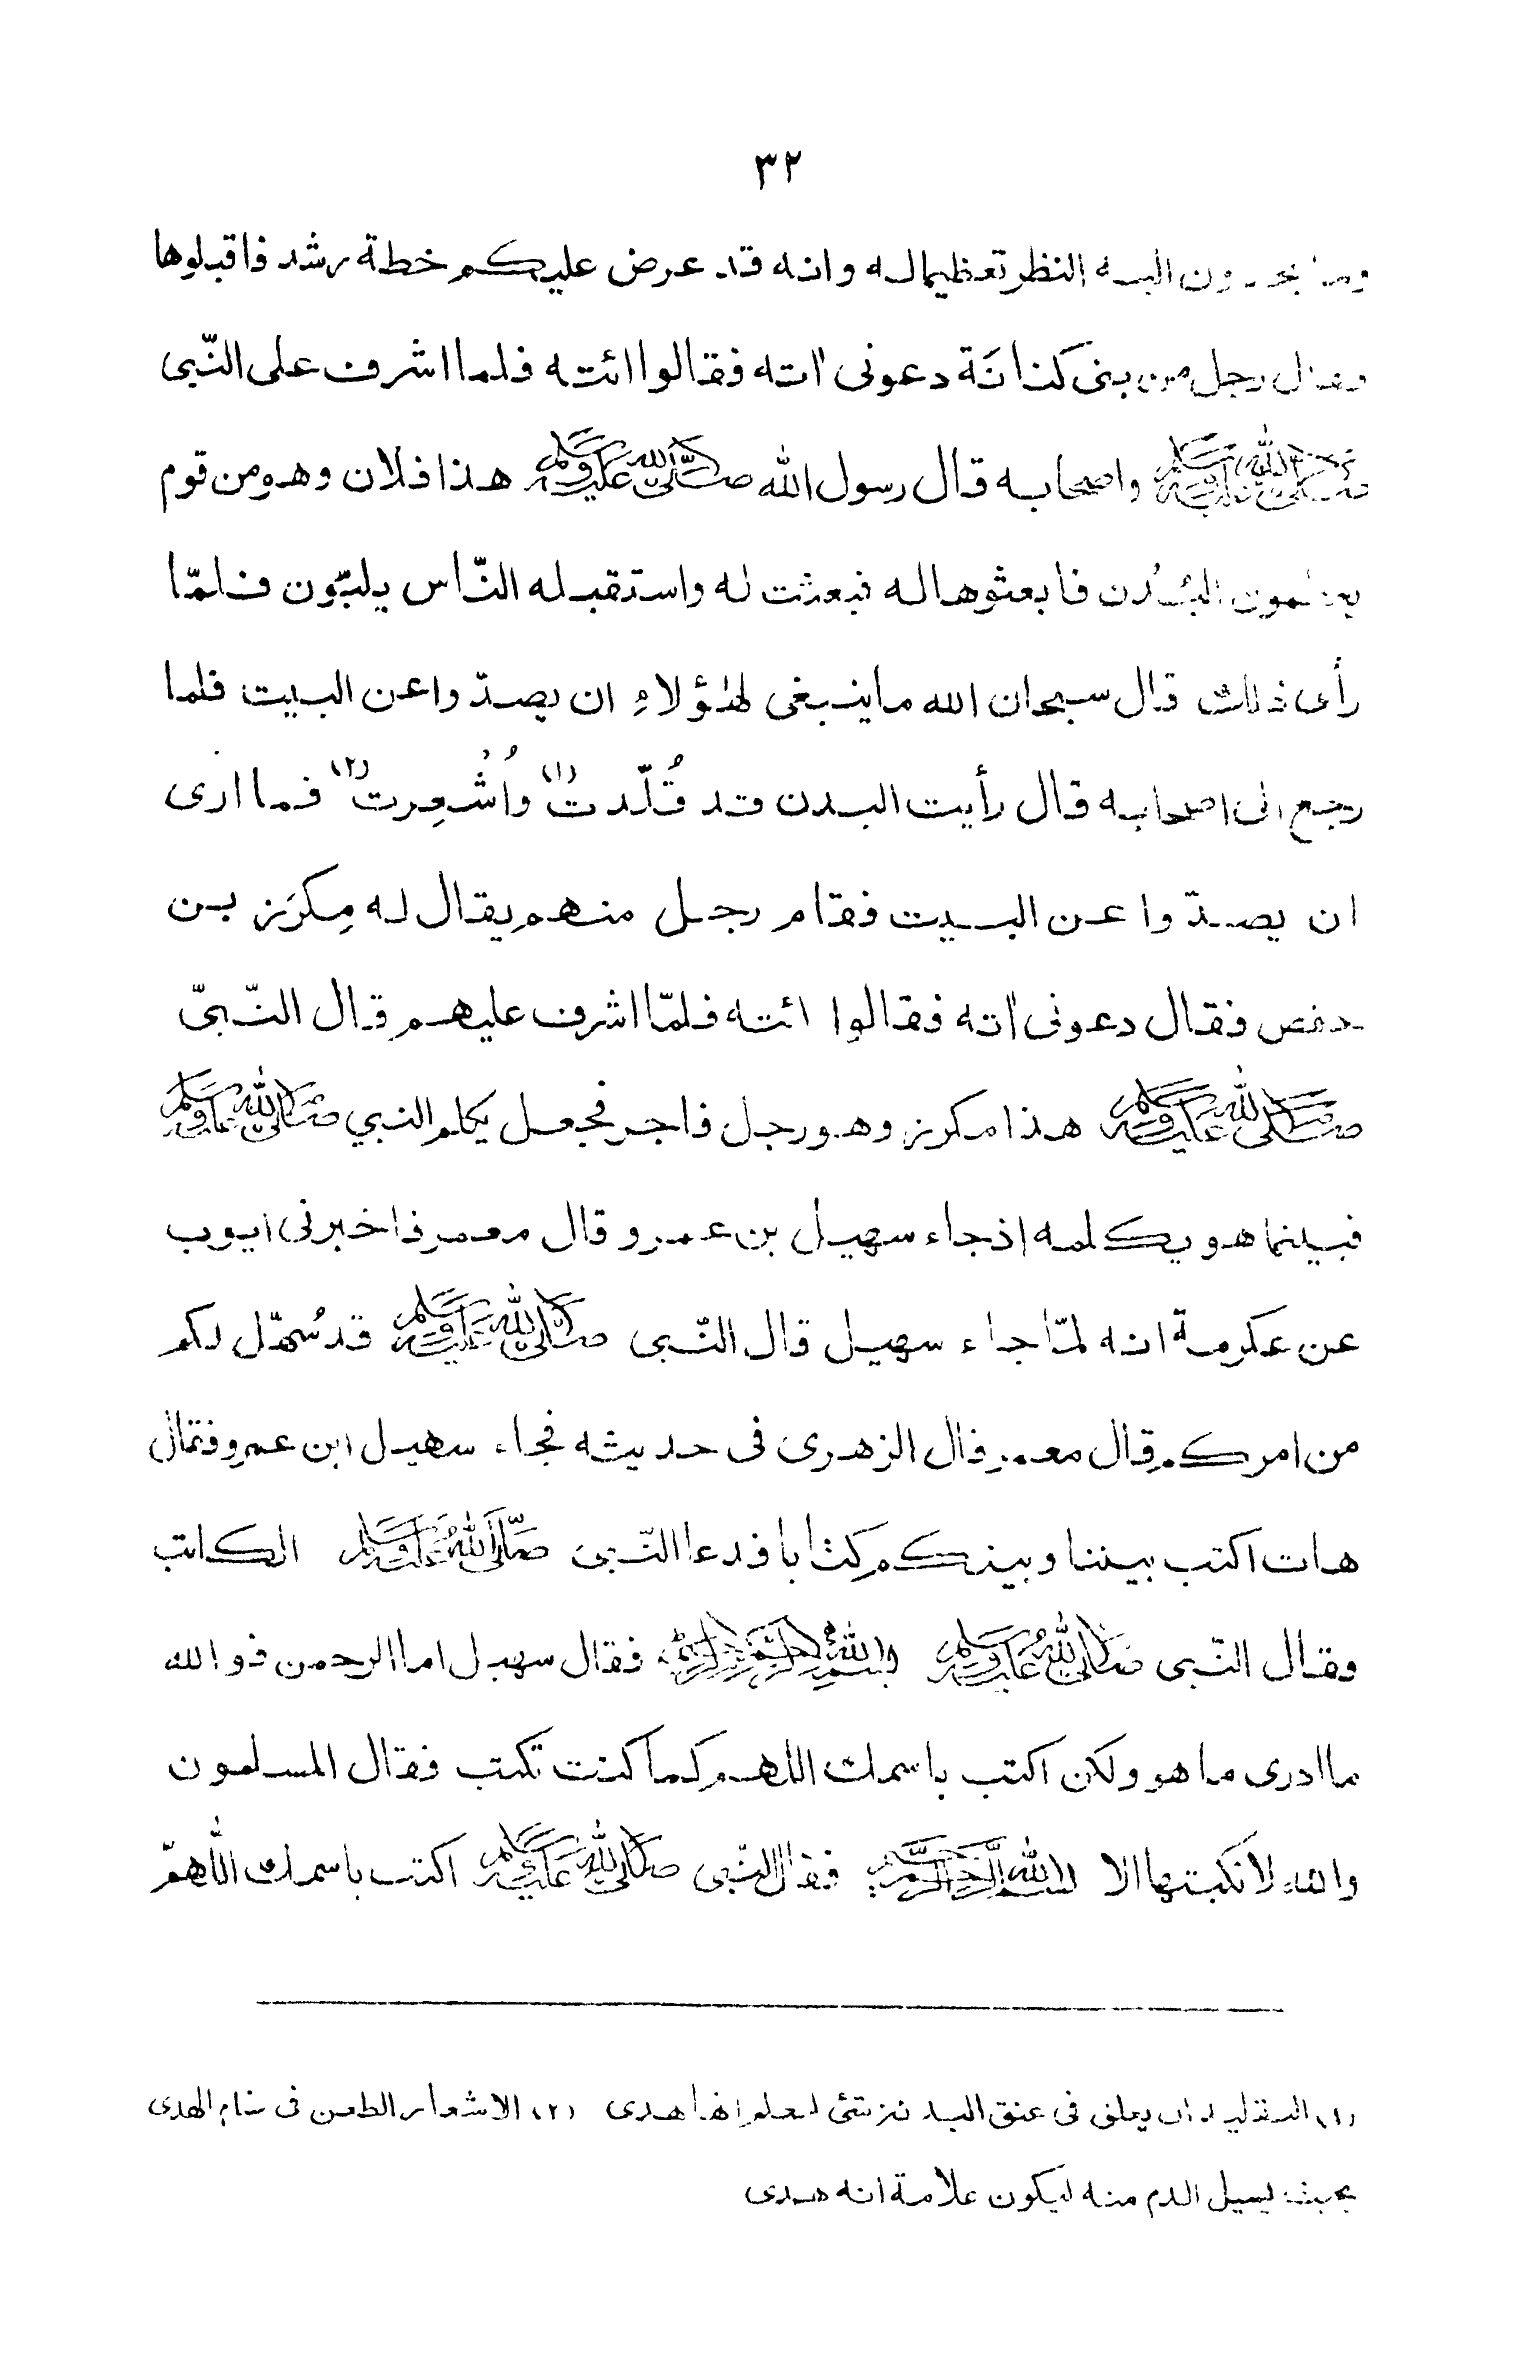 ٣٢
وما يحدون اليه النظر تعظيما له وانه قد عرض عليكم خطة رشد فاقبلوها
وقال رجل من بنى كنانَة دعونى اٰته فقالوا ائته فلما اشرف على النّبى
صلى الله عليه وسلم واصحابه قال رسول الله صلى الله عليه وسلم هذا فلان وهو من قوم
يعظمون البُدن فابعثوها له فبعثت له واستقبله النّاس يلبّون فلمّا
رأى ذلك قال سبحان الله ما ينبغى لهٰؤلاءِ ان يصدّوا عن البيت فلما
رجع الى اصحابه قال رأيت البدن قد قُلّدت (١) واُشْعِرت (٢) فما ارى
ان يصدّوا عن البيت فقام رجل منهم يقال له مِكرَز بن
حفص فقال دعونى اٰته فقالوا ائته فلمّا اشرف عليهم قال النّبىّ
صلى الله عليه وسلم هذا مكرز وهو رجل فاجر فجعل يكلم النبي صلى الله عليه وسلم
فبينما هو يكلمه اذ جاء سهيل بن عمرو قال معمر فاخبرنى ايوب
عن عكرمة انه لمّا جاء سهيل قال النّبى صلى الله عليه وسلم قد سُهّل لكم
من امركم قال معمر قال الزهرى فى حديثه فجاء سهيل ابن عمرو فقال
هات اكتب بيننا وبينكم كتابا فدعا النّبى صلى الله عليه وسلم الكاتب
وقال النّبى صلى الله عليه وسلم بسم الله الرحمن الرحيم فقال سهيل اما الرحمن فوالله
ما ادرى ما هو ولكن اكتب باسمك اللهم كما كنت تكتب فقال المسلمون
والله لا نكتبها الا بسم الله الرحمن الرحيم فقال النّبى صلى الله عليه وسلم اكتب باسمك اللّٰهمّ
(١) التقليد ان يعلق فى عنق البدنة شئ ليعلم انها هدى (٢) الاشعار الطعن فى سنام الهدى
بحيث يسيل الدم منه ليكون علامة انه هدى